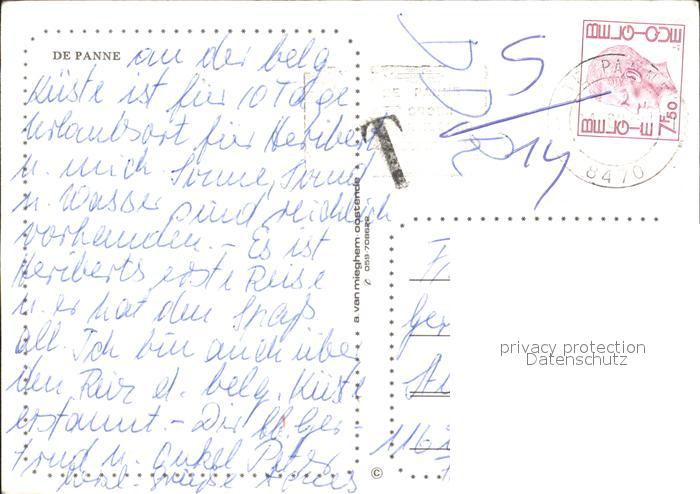 DE PANNE an der belg.
Küste ist für 10 Tage
Urlaubsort für Heribert
u. mich. Sonne, Sand
u. Wasser sind reichlich
vorhanden. - Es ist
Heriberts erste Reise
u. er hat den Spaß
all. Ich bin auch über
den Reiz d. belg. Küste
erstaunt. - Dir lb. Ger
trud u. Onkel Peter
Grüße Agnes
a. van mieghem oostende
059-708628
©
T
BELGIQUE
BELGIË
7F50
DE PANNE
8470
privacy protection
Datenschutz